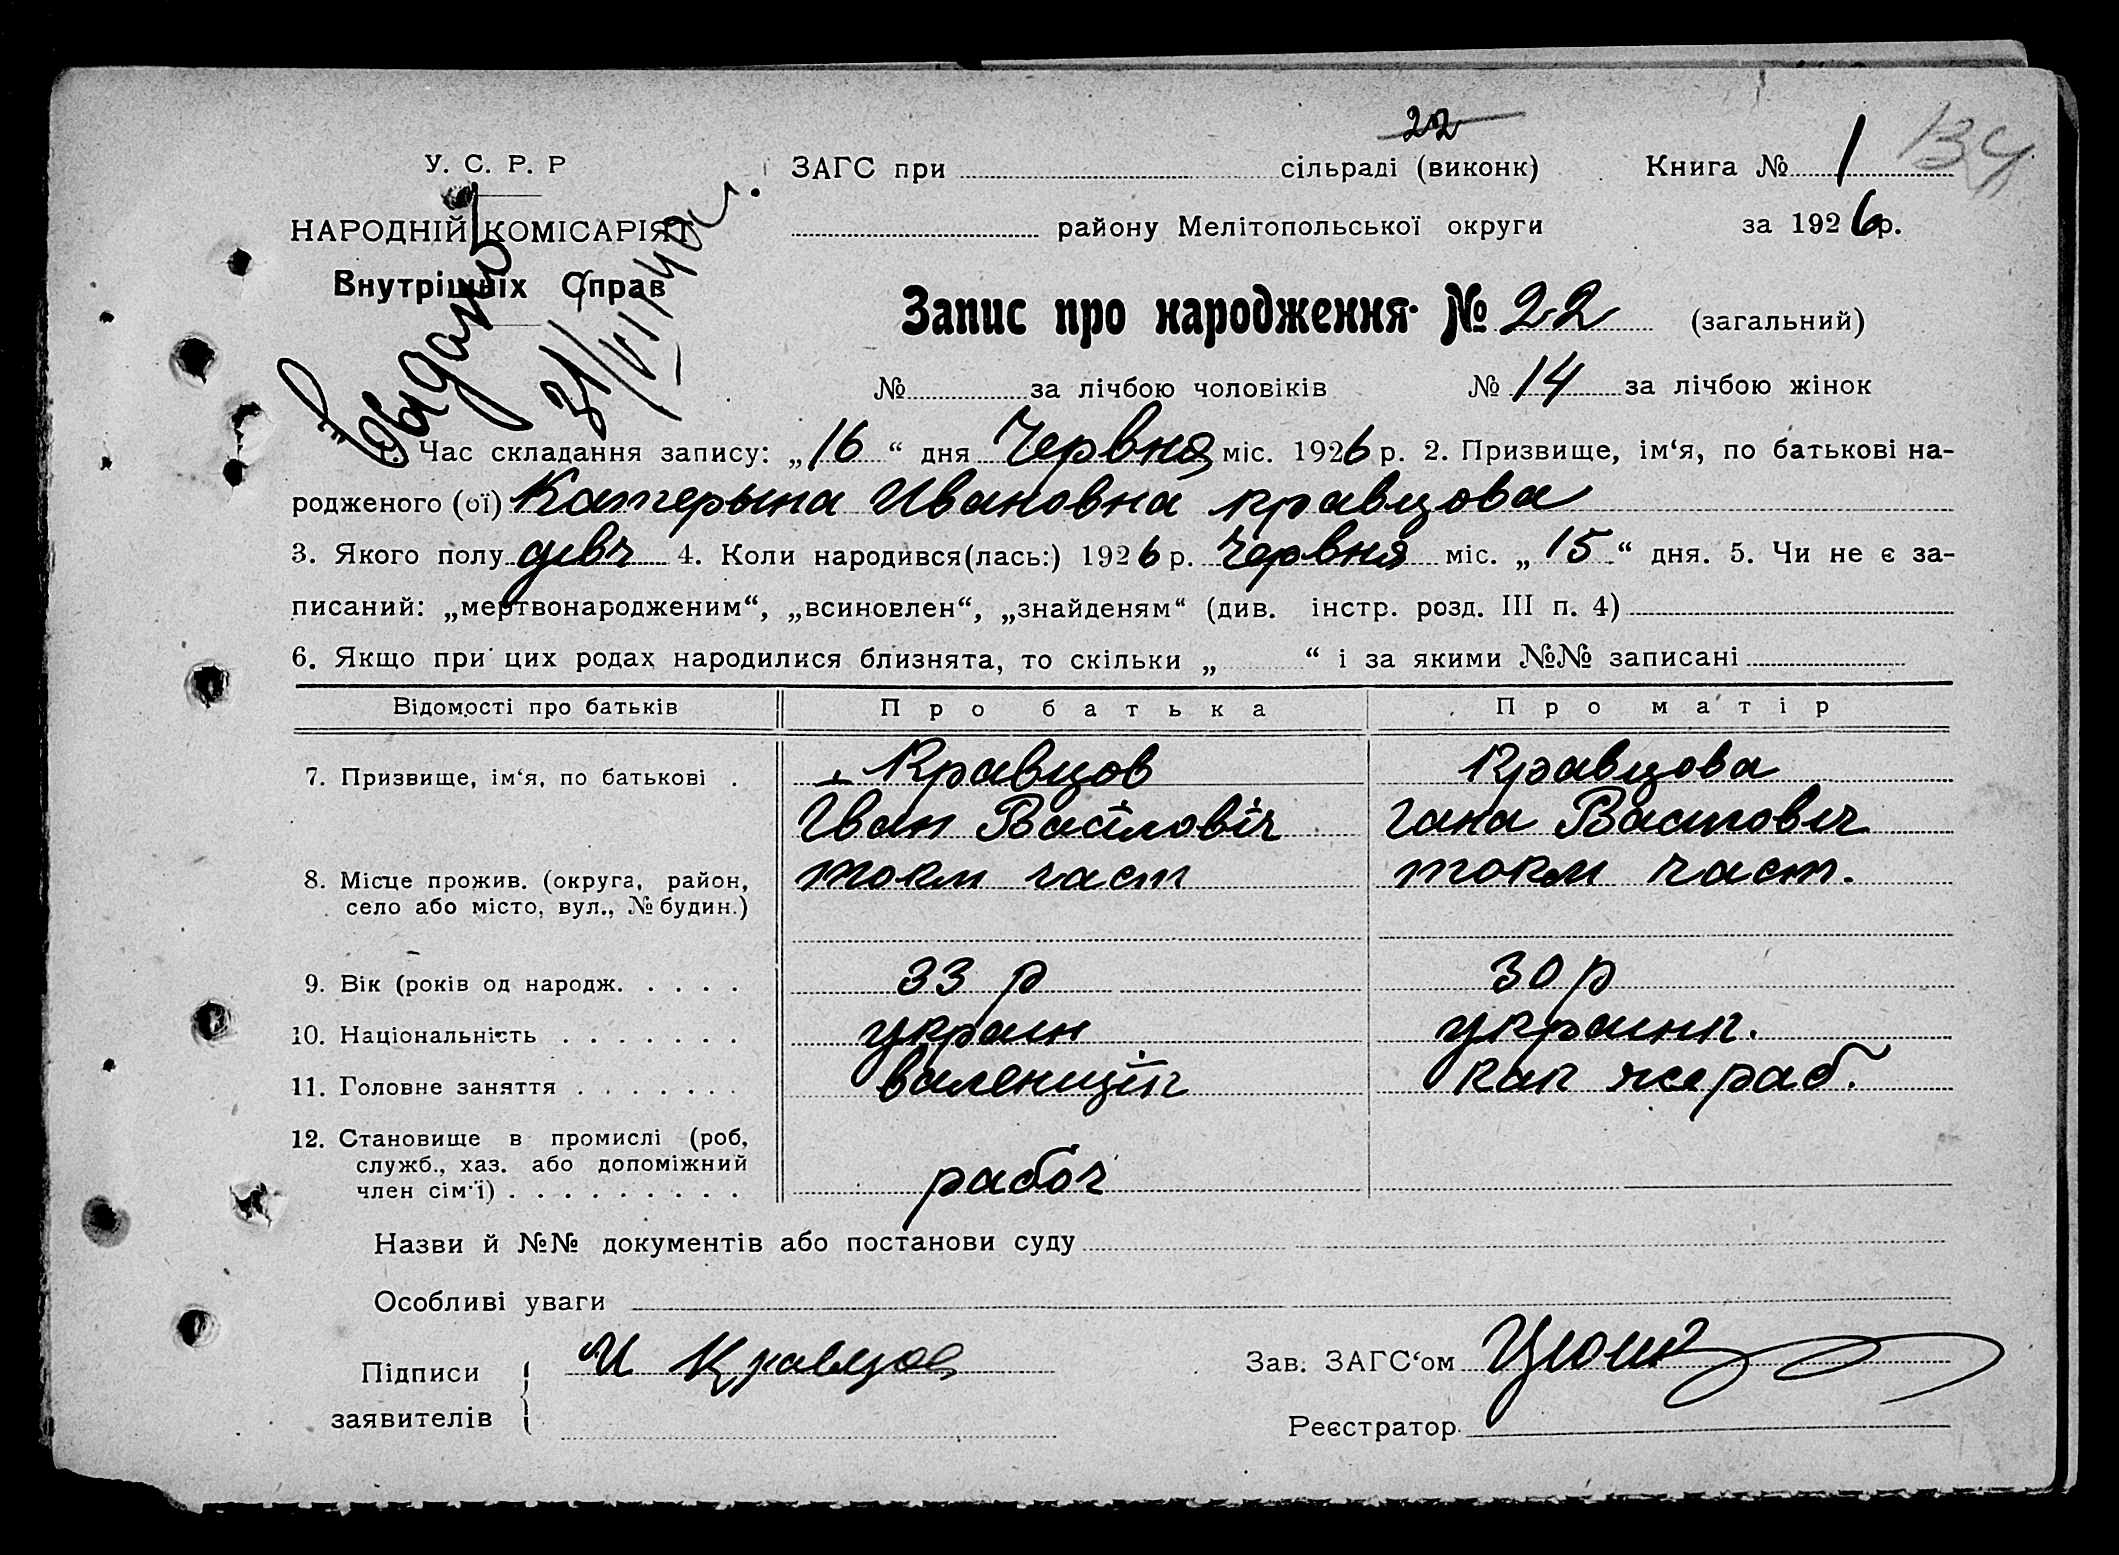 22
У. С. Р. Р
ЗАГС при сільраді (виконк) Книга № 1 134
НАРОДНІЙ КОМІСАРІЯТ
району Мелітопольської округи за 1926 р.
Внутрішніх Справ
31/VII 40
Запис про народження № 22 (загальний)
№ за лічбою чоловіків № 14 за лічбою жінок
1. Час складання запису: „16“ дня Червня міс. 1926 р. 2. Призвище, ім‘я, по батькові на-
родженого (ої) Катерына Ивановна Кравцова
3. Якого полу дівч 4. Коли народився(лась:) 1926 р. Червня міс. „15“ дня. 5. Чи не є за-
писаний: „мертвонародженим“, „всиновлен“, „знайденям“ (див. інстр. розд. III п. 4)
6. Якщо при цих родах народилися близнята, то скільки „ “ і за якими №№ записані
Відомості про батьків Про батька Про матір
7. Призвище, ім‘я, по батькові . Кравцов Кравцова
Іван Васіловіч Гана Василович
8. Місце прожив. (округа, район, токм част токм част.
село або місто, вул., № будин.)
9. Вік (років од народж. . . . . 33 р 30 р
10. Національність . . . . . . . украин украинк.
11. Головне заняття . . . . . . .
12. Становище в промислі (роб,
служб., хаз. або допоміжний
член сім‘ї) . . . . . . . . . рабоч
Назви й №№ документів або постанови суду
Особливі уваги
Підписи И Кравцов Зав. ЗАГС‘ом
заявителів Реєстратор